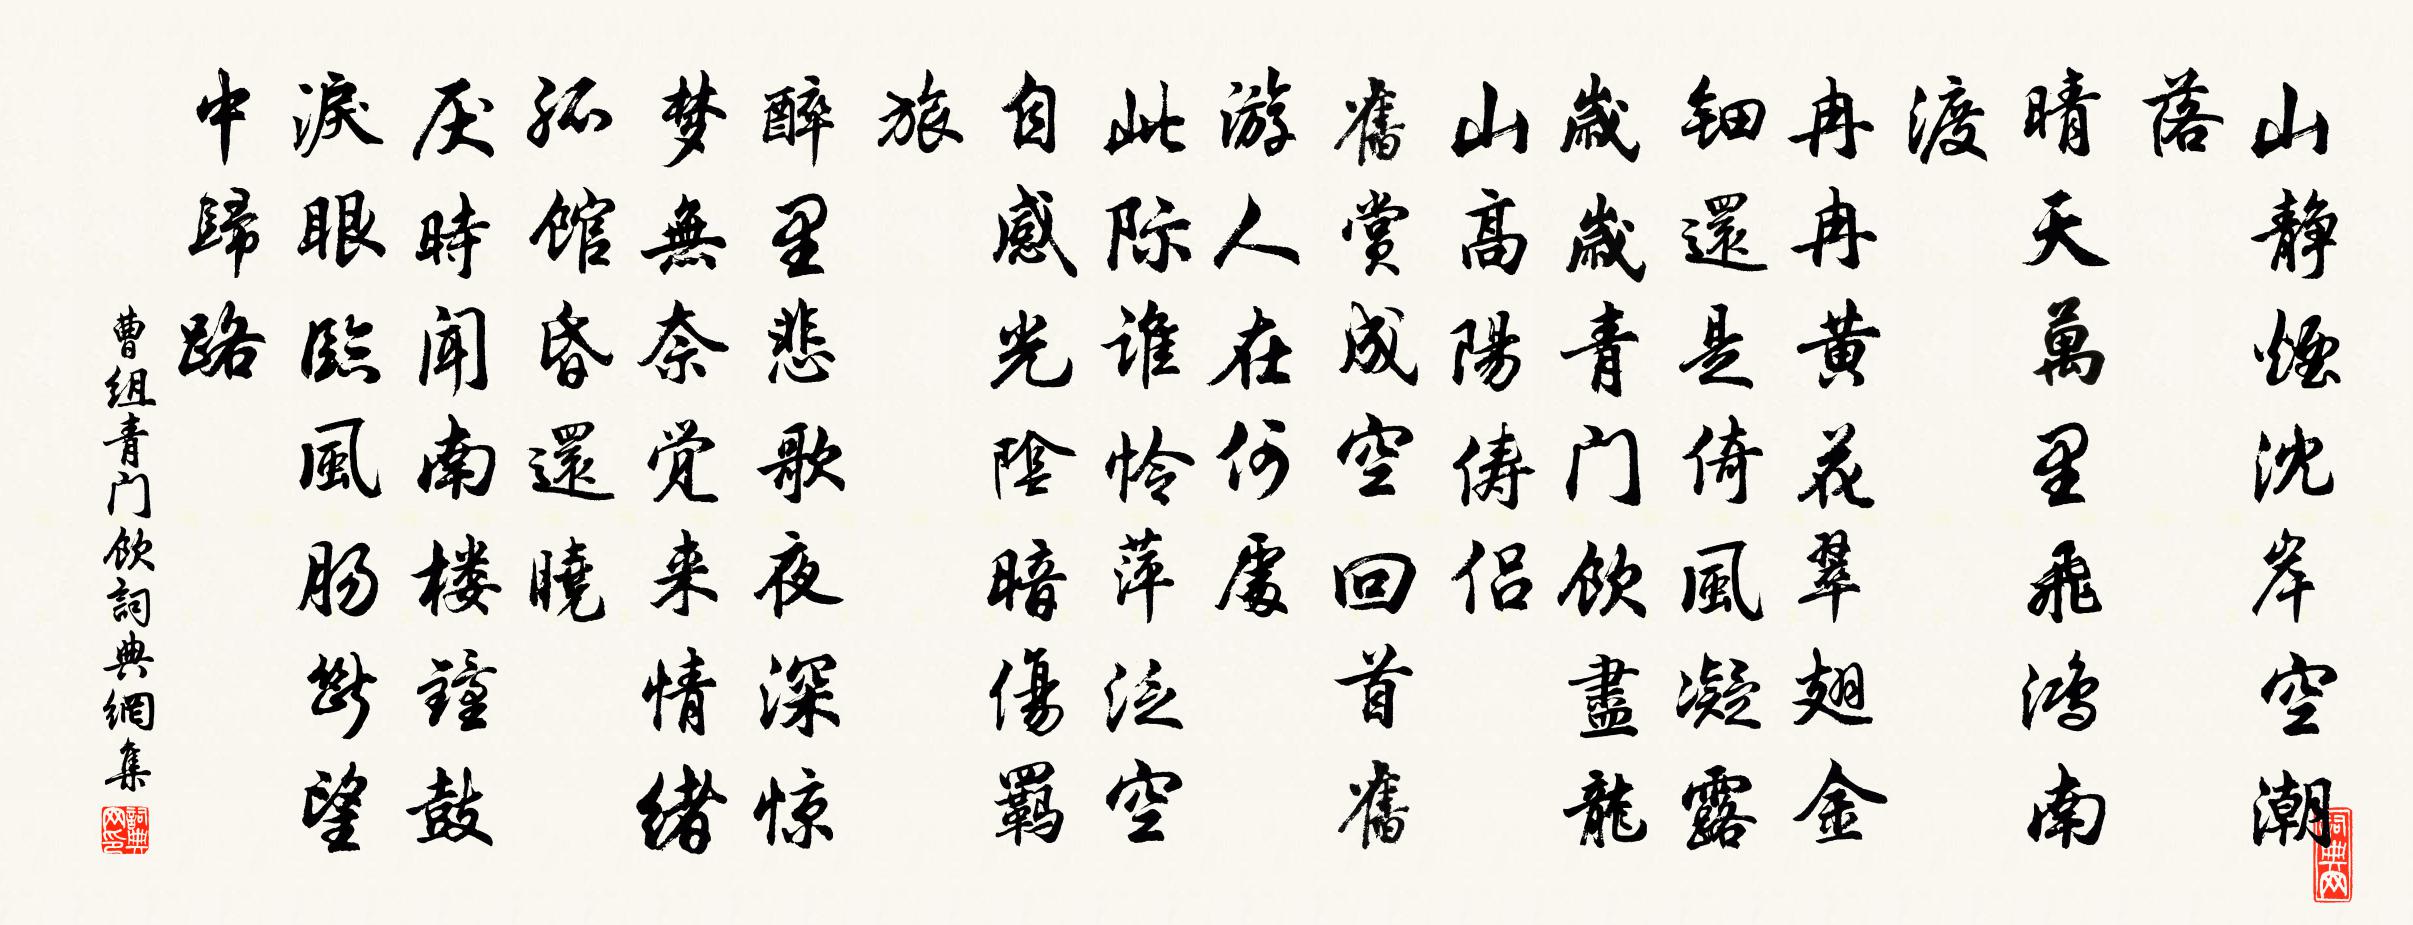 山静煙沈岸空潮
落
晴天萬里飛鴻南
渡
冉冉黄花翠翅金
钿還是倚風凝露
歲歲青门飲盡龍
山高陽俦侣
舊赏成空回首舊
游人在何處
此际谁怜萍泛空
自感光陰暗傷羁
旅
醉里悲歌夜深惊
梦無奈觉来情緒
孤馆昏還曉
厌時闻南楼鐘鼓
淚眼臨風肠斷望
中歸路
曹组青门飲詞典網集
詞典网印
詞典网